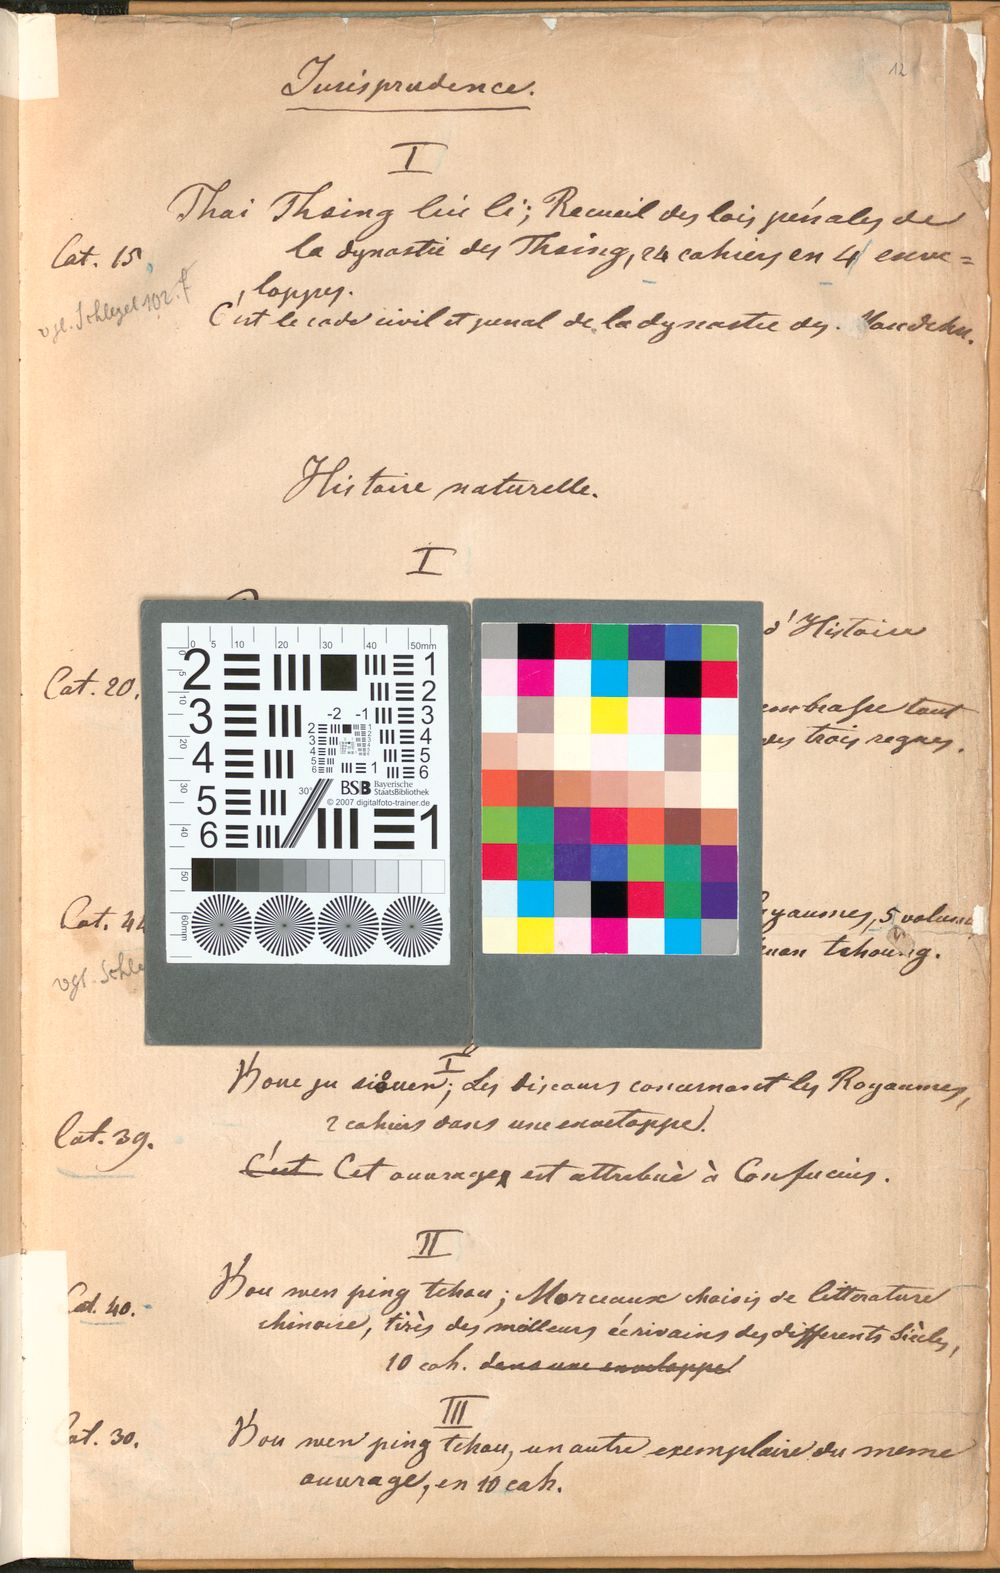 12
Jurisprudence.
I
Thai Thsing liu li; Recueil des lois pénales de
Cat. 15
la dynastie des Thsing, 24 cahiers en 4 enve=
vgl. Schlegel 102. f
loppes.
C'est le code civil et penal de la dynastie des
Histoire naturelle.
I
d'Histoire
Cat. 20.
embrasse tout
des trois regnes.
Cat. 44
Royaumes, 5 volumes
vgl. Schle
tchoung.
0 5 10 20 30 40 50mm
5 10 20 30 40 50 60mm
2 1
2
3 -2 -1 3
4 4
5
6
5 30°
6 1
BSB Bayerische
StaatsBibliothek
© 2007 digitalfoto-trainer.de
I
Koue ju siouen; Les discours concernant les Royaumes,
2 cahiers dans une enveloppe.
Cat. 39.
C'est Cet ouvrage est attribué à Confucius.
II
Kou wen ping tchou; Morceaux choisis de litterature
Cat. 40.
chinoise, tirés des meilleurs écrivains des differents Siècles,
10 cah. dans une enveloppe
III
Cat. 30.
Kou wen ping tchou, un autre exemplaire du meme
ouvrage, en 10 cah.